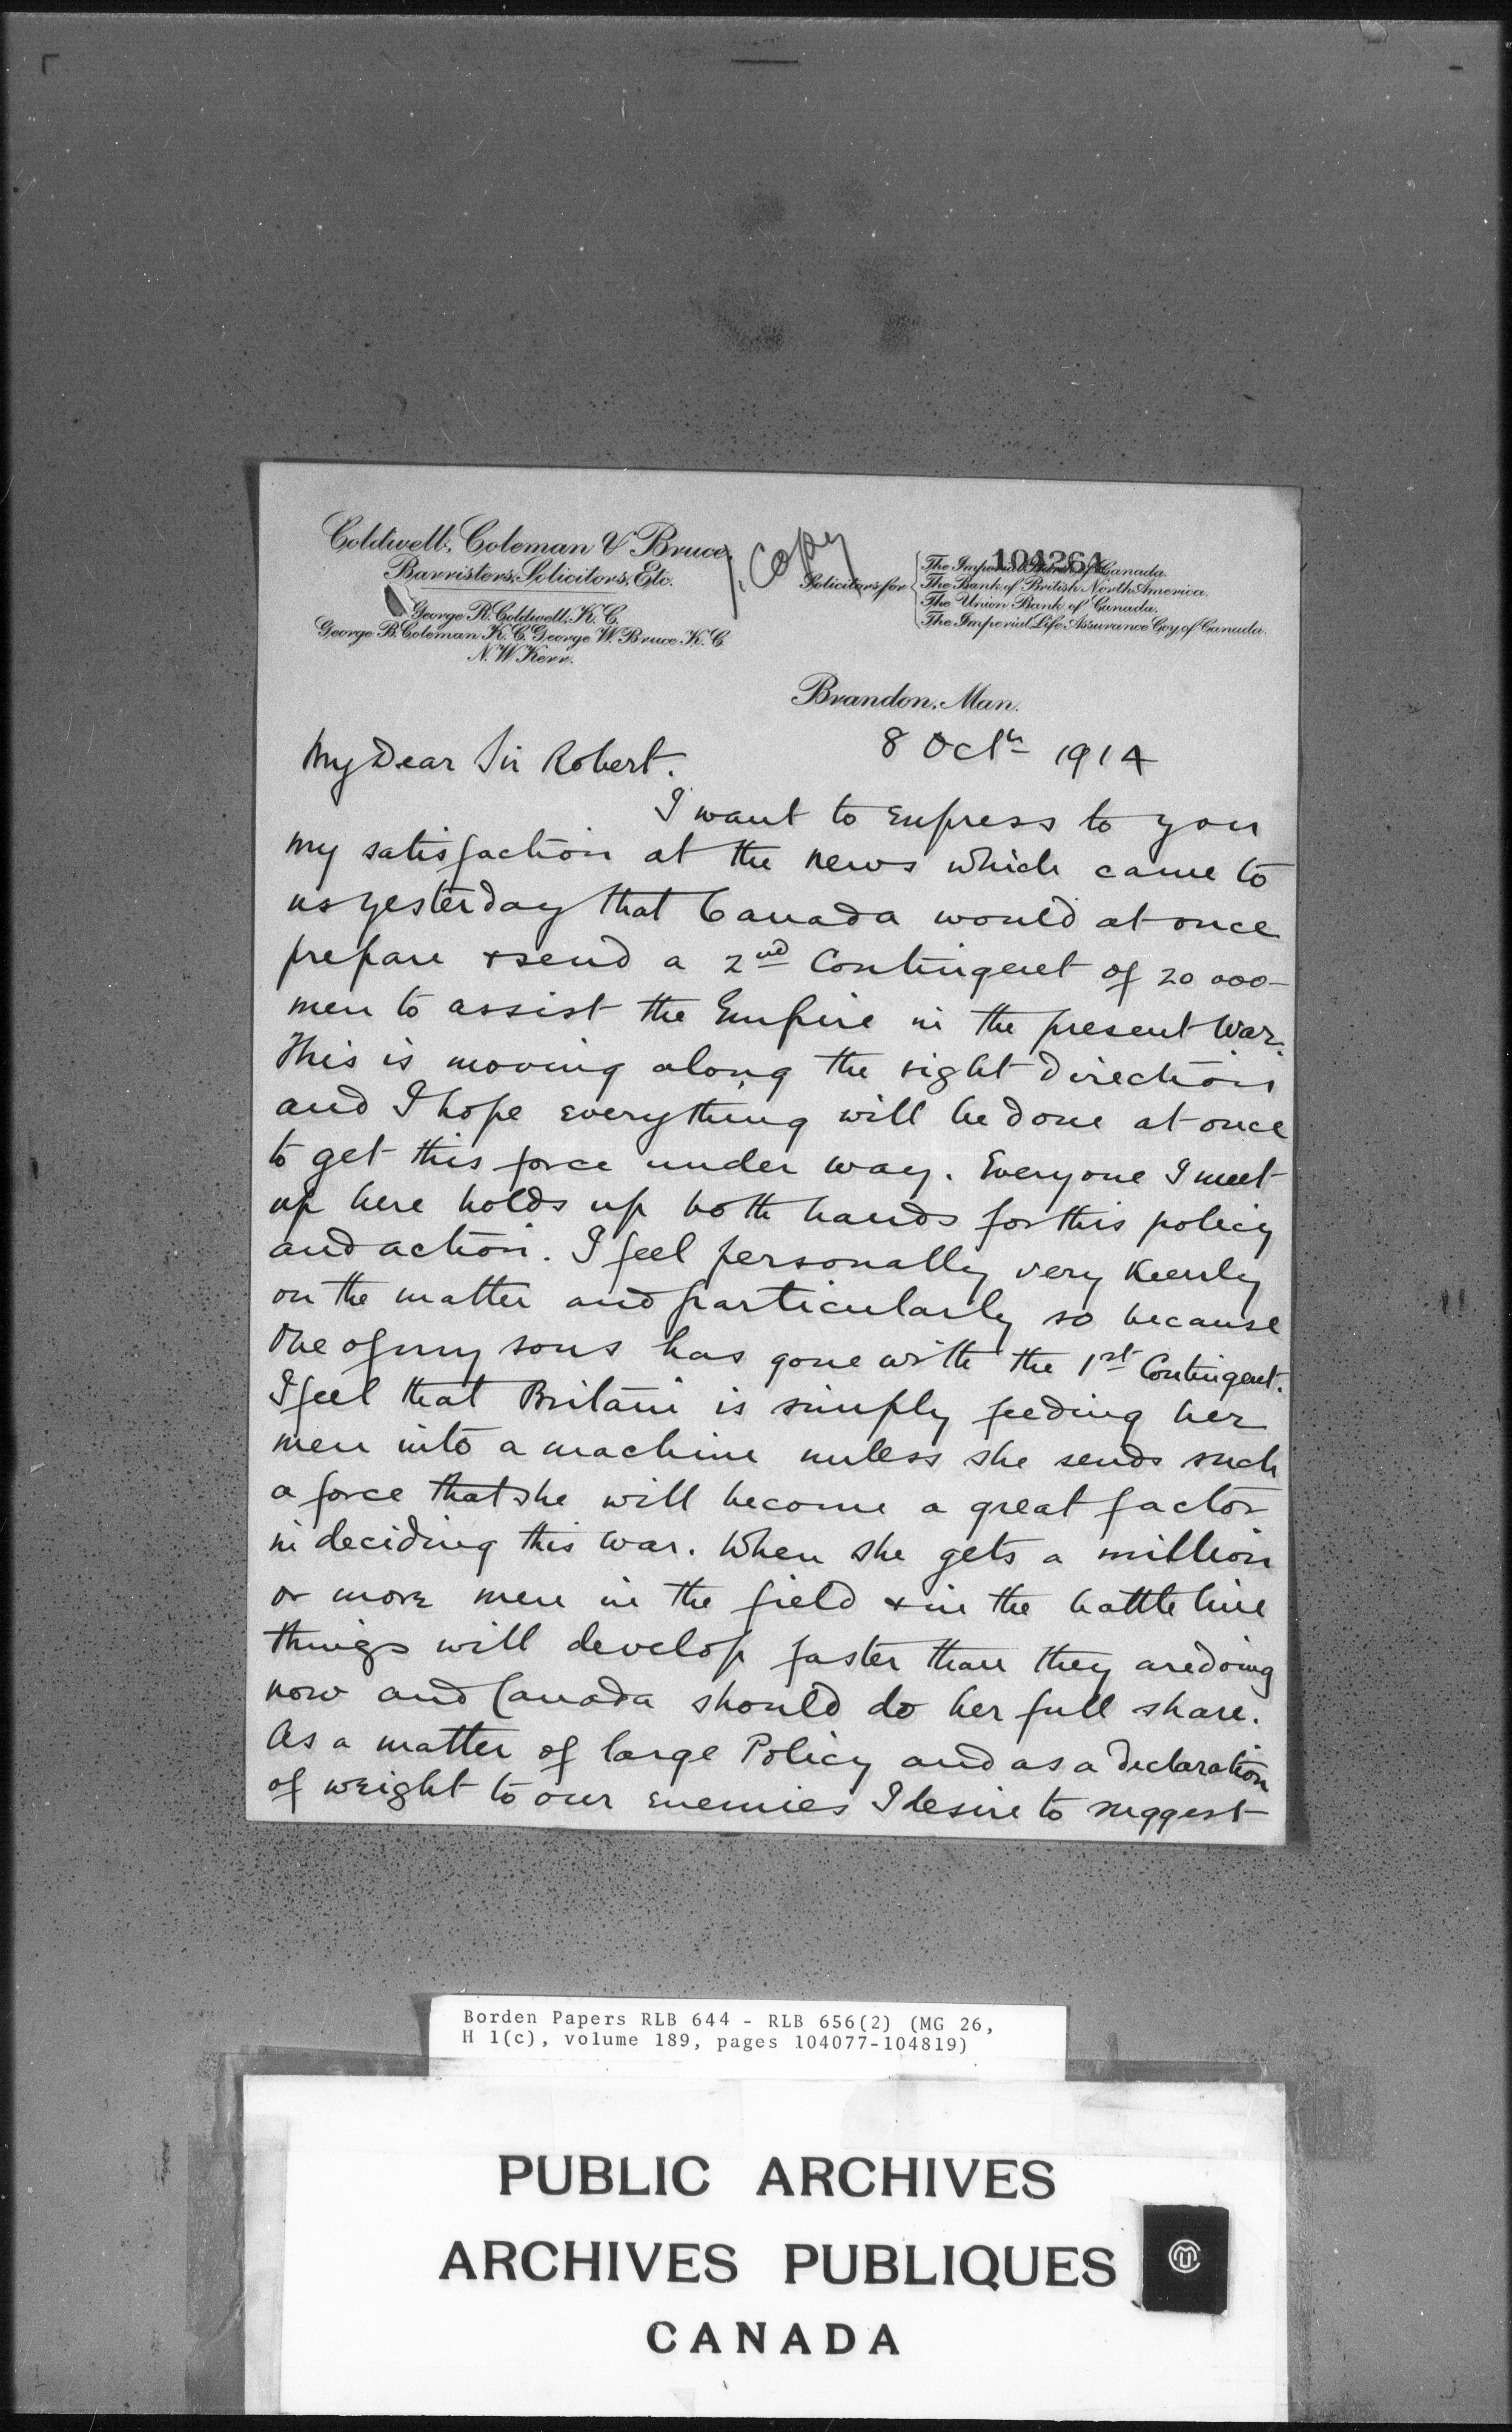 Coldwell, Coleman & Bruce,
Barristers, Solicitors, Etc.
George R. Coldwell, K.C.
George B. Coleman K.C. George W. Bruce K.C.
N. W. Kerr.
Copy
104261
Solicitors for
The Imperial Bank of Canada.
The Bank of British North America.
The Union Bank of Canada.
The Imperial Life Assurance Coy of Canada.
Brandon, Man.
8 Octh 1914
My Dear Sir Robert.
I want to express to you
my satisfaction at the news which came to
us yesterday that Canada would at once
prepare & send a 2nd Contingent of 20 000-
men to assist the Empire in the present War.
This is moving along the right direction
and I hope everything will be done at once
to get this force under way. Everyone I meet
up here holds up both hands for this policy
and action. I feel personally very keenly
on the matter and particularly so because
one of my sons has gone with the 1st Contingent.
I feel that Britain is simply feeding her
men into a machine unless she sends such
a force that she will become a great factor
in deciding this war. When she gets a million
or more men in the field & in the battle line
things will develop faster than they are doing
now and Canada should do her full share.
As a matter of large Policy and as a declaration
of weight to our enemies I desire to suggest
Borden Papers RLB 644 - RLB 656(2) (MG 26,
H 1(c), volume 189, pages 104077-104819)
PUBLIC ARCHIVES
ARCHIVES PUBLIQUES
CANADA